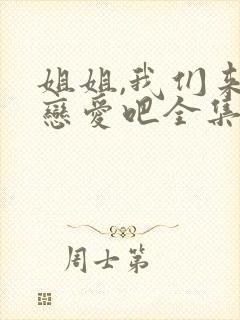 姐姐,我们来
戀愛吧全集
周士第